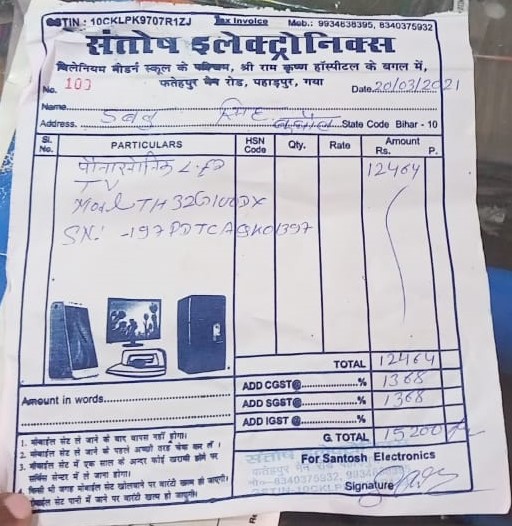 GSTIN : 10CKLPK9707R1ZJ Tax Invoice Mob.: 9934638395, 8340375932
संतोष इलेक्ट्रोनिक्स
मिलेनियम मॉडर्न स्कूल के पश्चिम, श्री राम कृष्ण हॉस्पीटल के बगल में,
No. 103 फतेहपुर मैन रोड, पहाड़पुर, गया Date. 20/03/2021
Name
Address. State Code Bihar - 10
Sl. No. PARTICULARS HSN Code Qty. Rate Amount Rs. P.
L.ED 12464
TV
Model TH32G100DX
SN:
TOTAL 12464
Amount in words ADD CGST@ % 1368
ADD SGST@ % 1368
ADD IGST@ %
G. TOTAL 15200
1. मोबाईल सेट ले जाने के बाद वापस नहीं होगा।
2. मोबाईल सेट ले जाने के पहले अच्छी तरह चेक कर लें।
3. मोबाईल सेट में एक साल के अन्दर कोई खराबी होने पर
सर्विस सेन्टर में ले जाना होगा।
4. किसी भी जगह मोबाईल सेट खोलवाने पर वारंटी खत्म हो जाएगी।
मोबाईल सेट पानी में जाने पर वारंटी खत्म हो जाएगी।
For Santosh Electronics
Signature